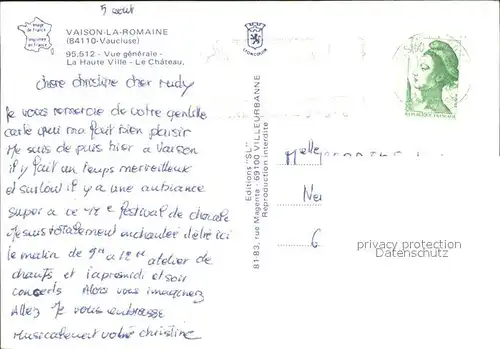 5 août
VAISON-LA-ROMAINE
(84110-Vaucluse)
95.512 - Vue générale -
La Haute Ville - Le Château.
chère christine cher Rudy
Je vous remercie de votre gentille
carte qui m'a fait bien plaisir
Je suis depuis hier a Vaison
il y fait un temps merveilleux
et surtout il y a une ambiance
super a ce festival de chorale
Je suis totalement enchantée d'être ici
le matin de 9H a 12H atelier de
chants et l'apresmidi et soir
concerts Alors vous imaginez
Allez Je vous embrasse
Musicalement votre christine
Editions "SL"
81-83, rue Magenta - 69100 VILLEURBANNE
Reproduction interdite
REPUBLIQUE FRANÇAISE
Melle
privacy protection
Datenschutz